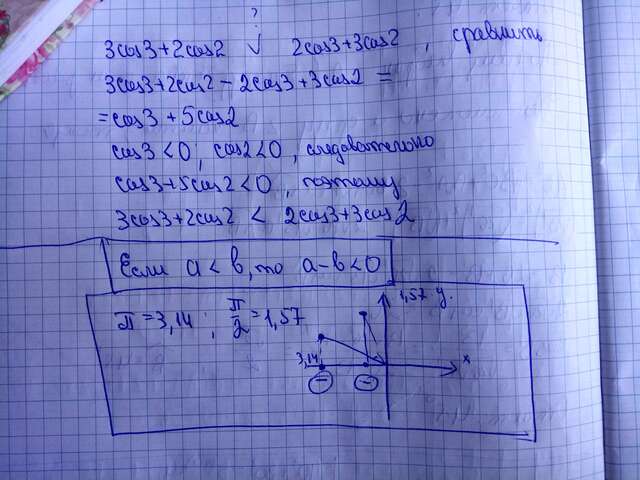 ?
3cos3+2cos2 ∨ 2cos3+3cos2, сравнить
3cos3+2cos2 - 2cos3+3cos2 =
=cos3+5cos2
cos3<0, cos2<0, следовательно
cos3+5cos2<0, поэтому
3cos3+2cos2 < 2cos3+3cos2
Если a<b, то a-b<0
π=3,14; π/2=1,57
1,57 y
3,14 x
− −